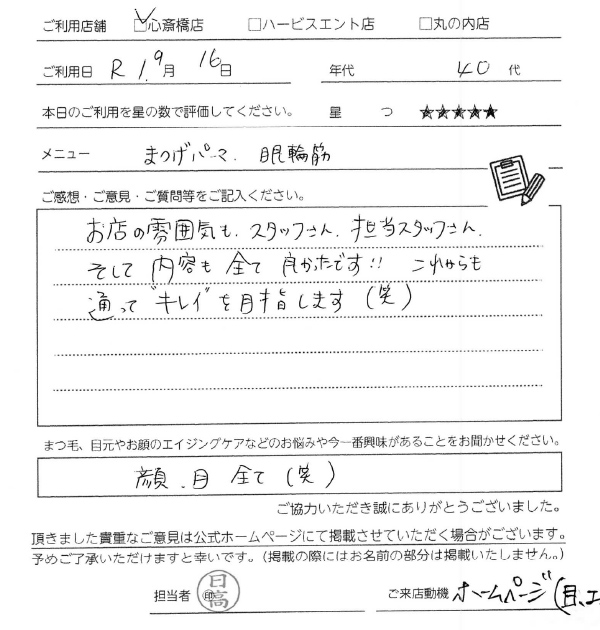 ご利用店舗 ☑心斎橋店 □ハービスエント店 □丸の内店
ご利用日 R1.9月16日 年代 40代
本日のご利用を星の数で評価してください。 星 つ ★★★★★
メニュー まつげパーマ. 眼輪筋
ご感想・ご意見・ご質問等をご記入ください。
お店の雰囲気も、スタッフさん、担当スタッフさん、
そして内容も全て良かったです!! これからも
通って"キレイ"を目指します(笑)
まつ毛、目元やお顔のエイジングケアなどのお悩みや今一番興味があることをお聞かせください。
顔、目 全て(笑)
ご協力いただき誠にありがとうございました。
頂きました貴重なご意見は公式ホームページにて掲載させていただく場合がございます。
予めご了承いただけますと幸いです。(掲載の際にはお名前の部分は掲載いたしません。)
担当者 印 日高 ご来店動機 ホームページ(目、エ